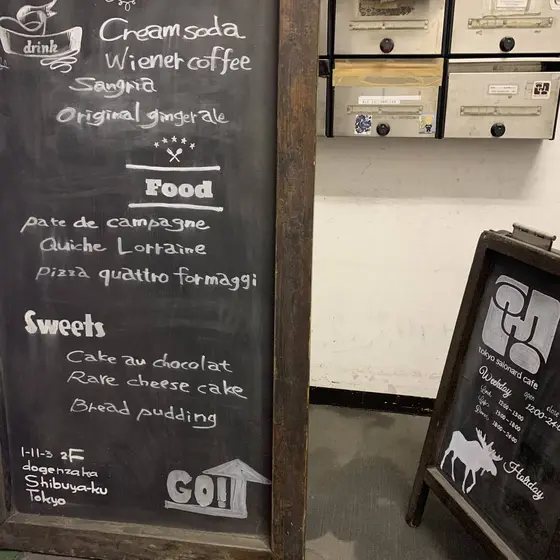 drink
Cream soda
Wiener coffee
Sangria
Original ginger ale
Food
pate de campagne
Quiche Lorraine
pizza quattro formaggi
Sweets
Cake au chocolat
Rare cheese cake
Bread pudding
1-11-3 2F
dogenzaka
Shibuya-ku
Tokyo
GO!!
tokyo salonard cafe
Weekday open
12:00-24
Holiday